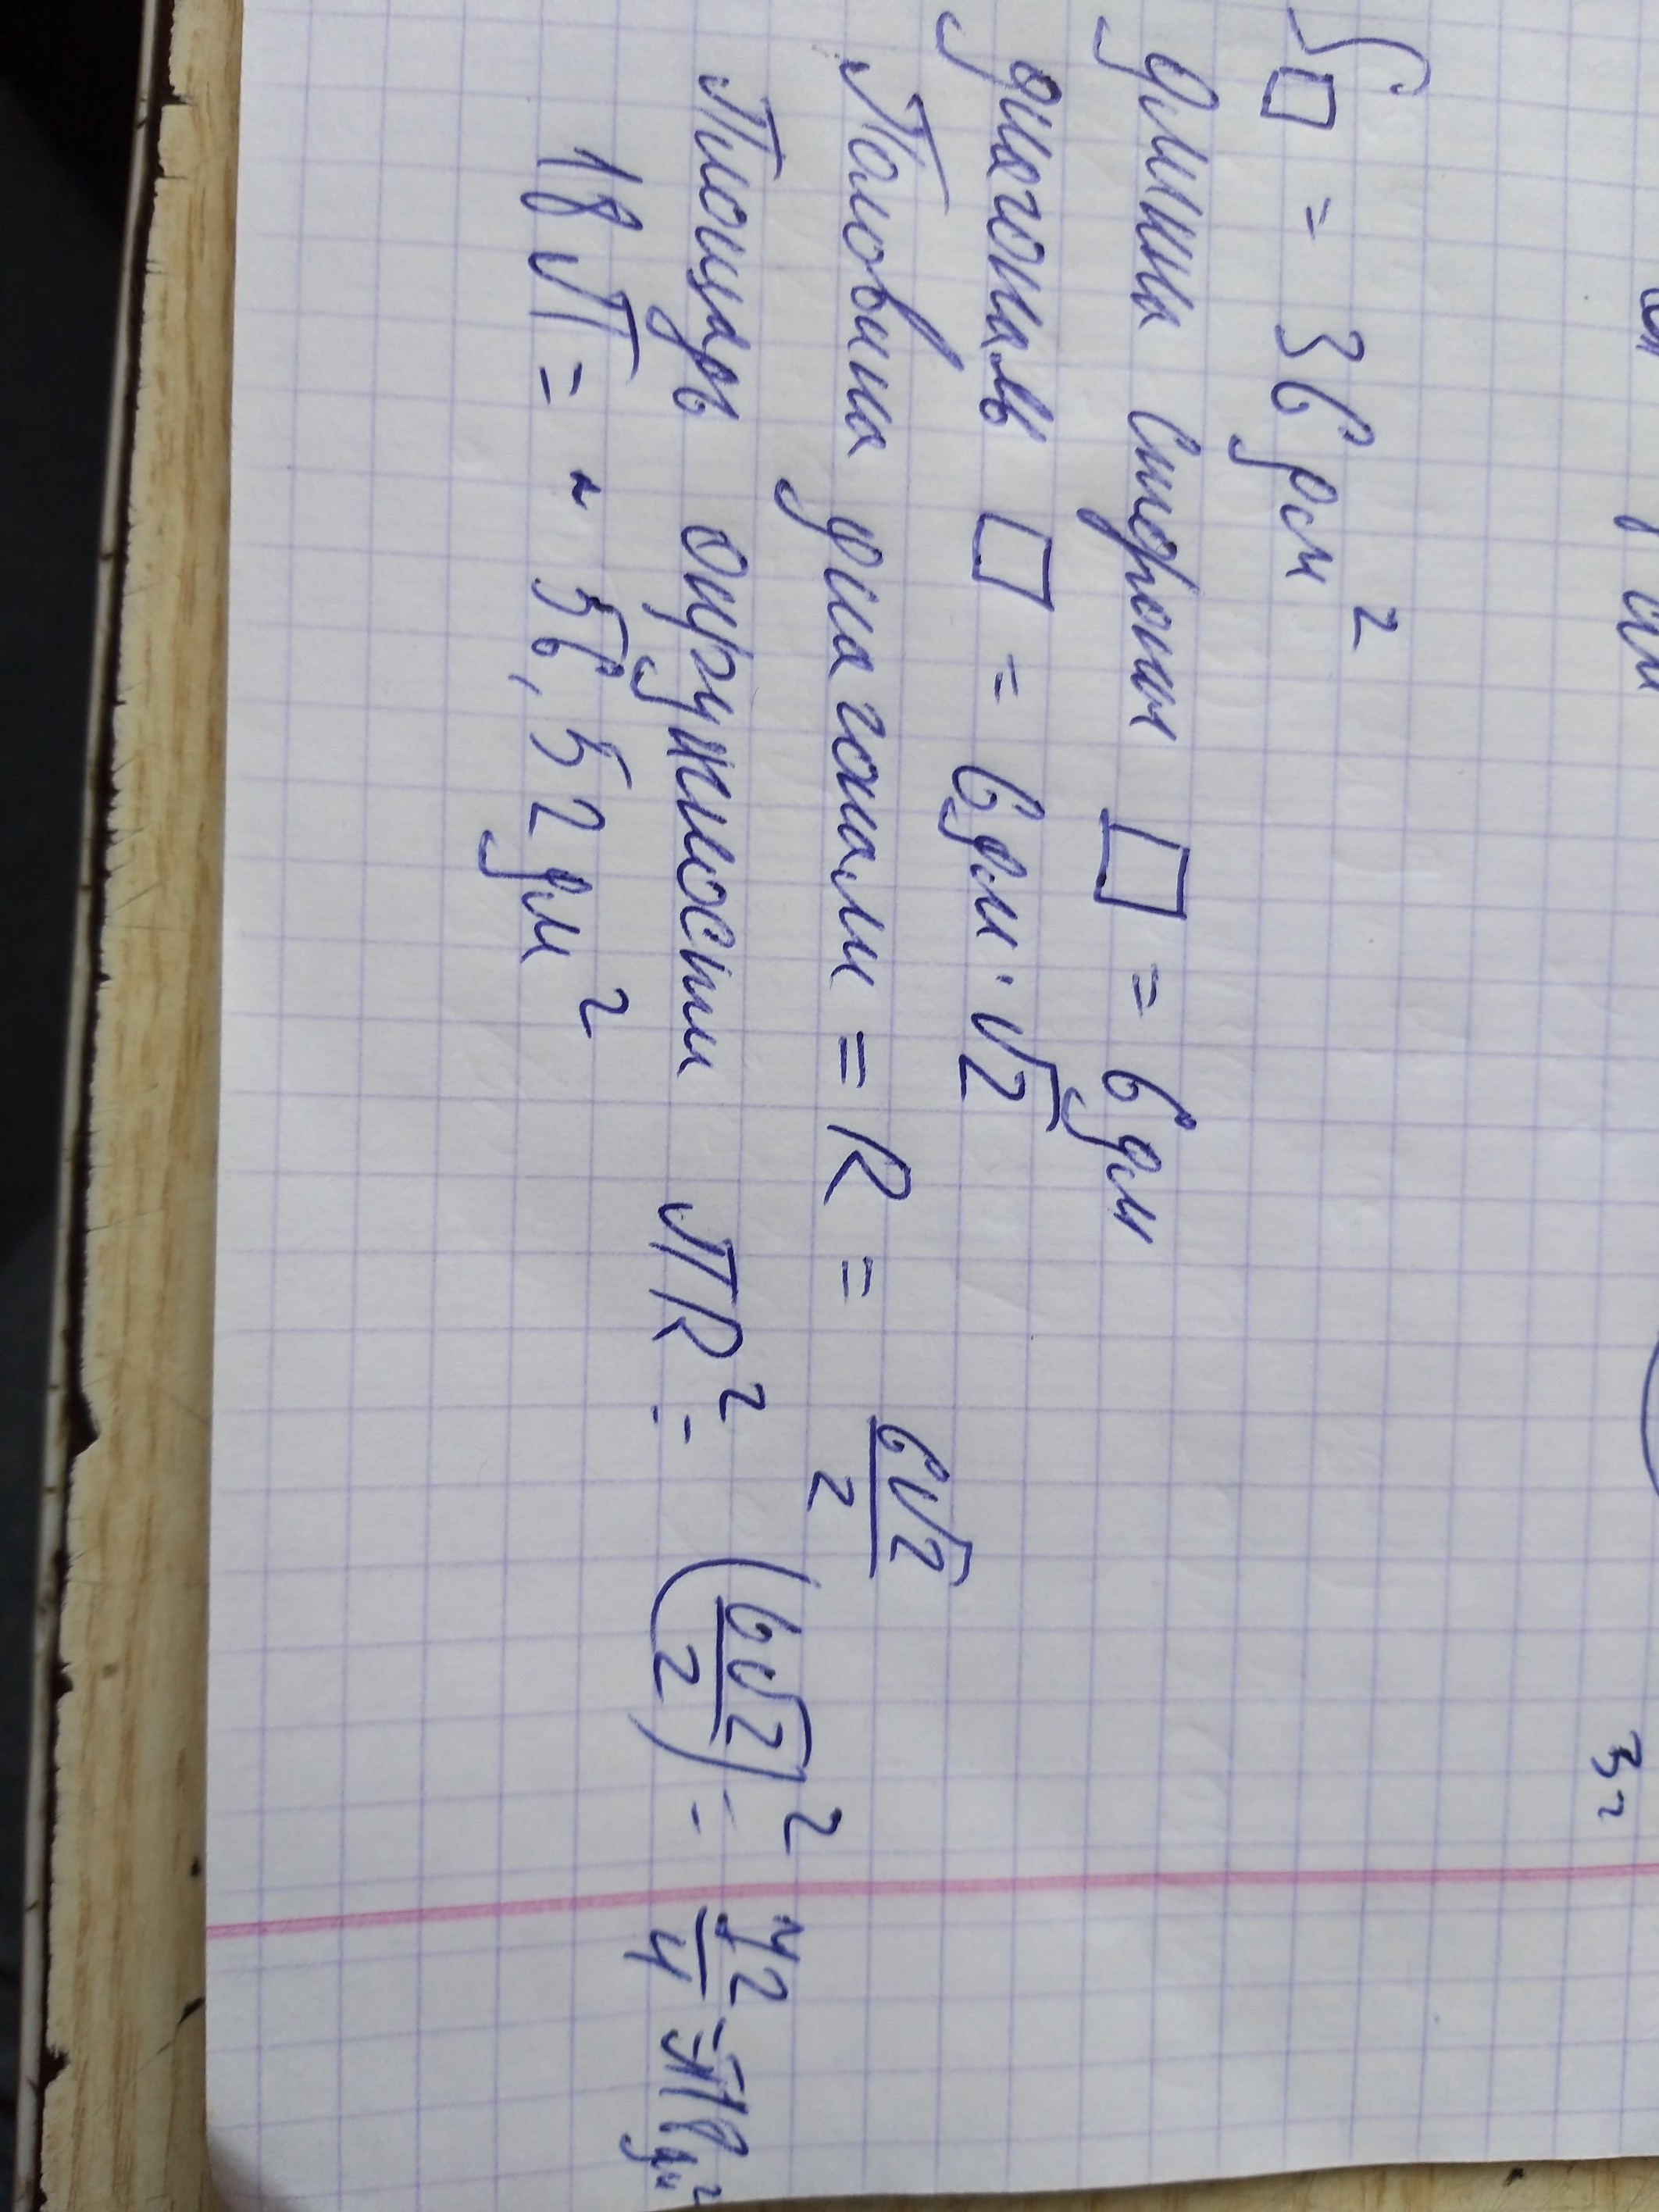 S□ = 36 дм²
Длина стороны □ = 6 дм
диагональ □ = 6 дм · √2
Половина диагонали = R = 6√2/2
Площадь окружности πR² = (6√2/2)² = 72/4 = π18 дм²
18π = ~ 56,52 дм²